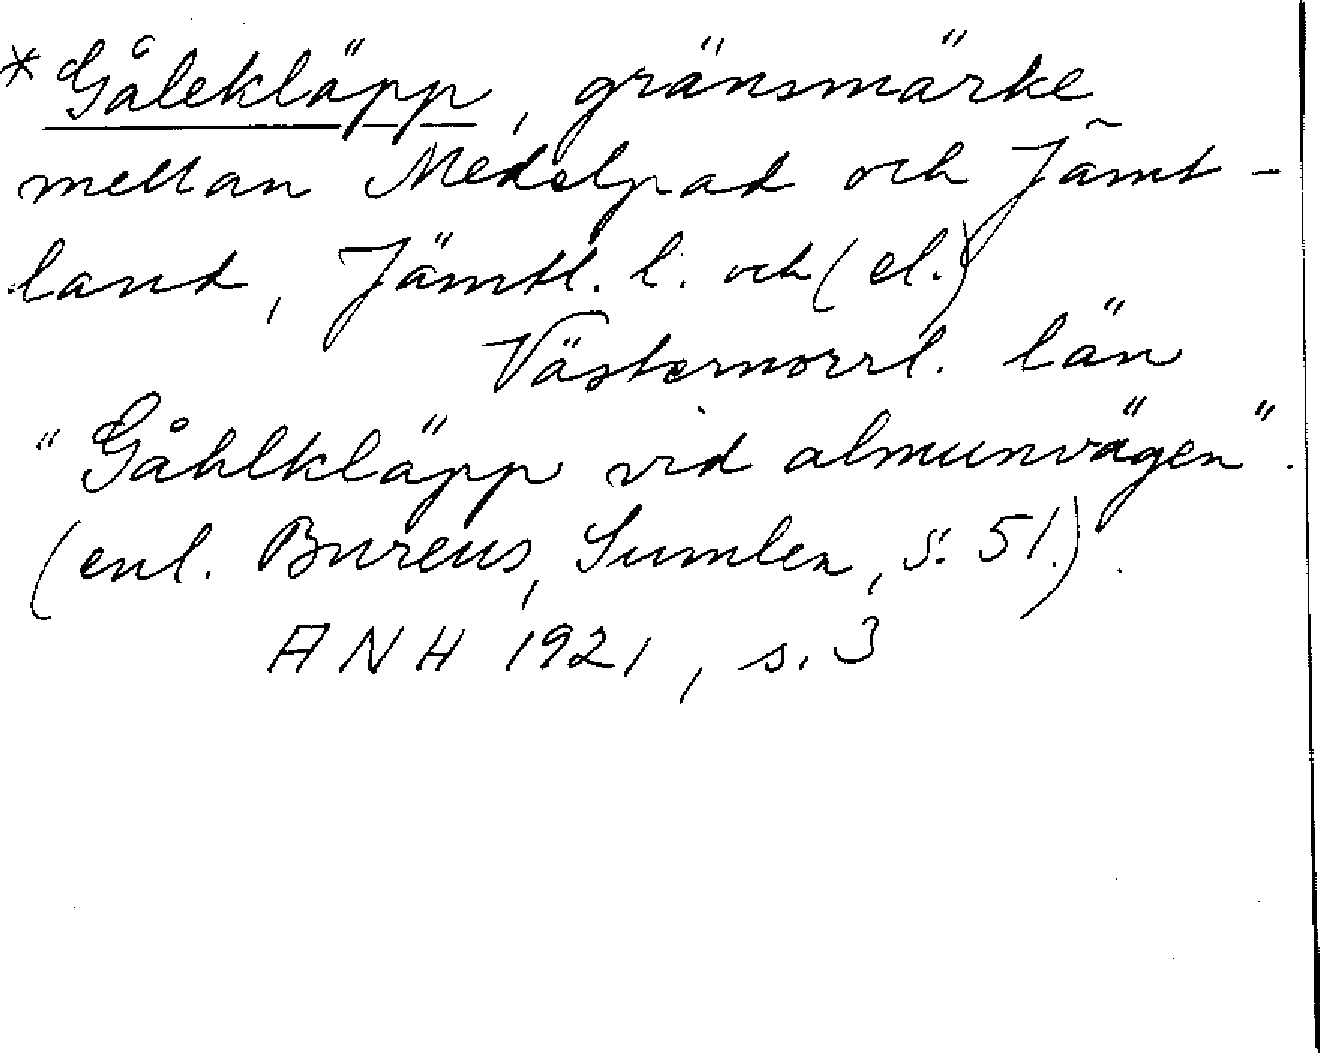 * Gålekläpp, gränsmärke
mellan Medelpad och Jämt-
land, Jämtl. l. och (el.)
Västernorrl. län
"Gåhlkläpp vid almunvägen".
(enl. Bureus, Sumlen, s. 51.).
ANH 1921, s. 3